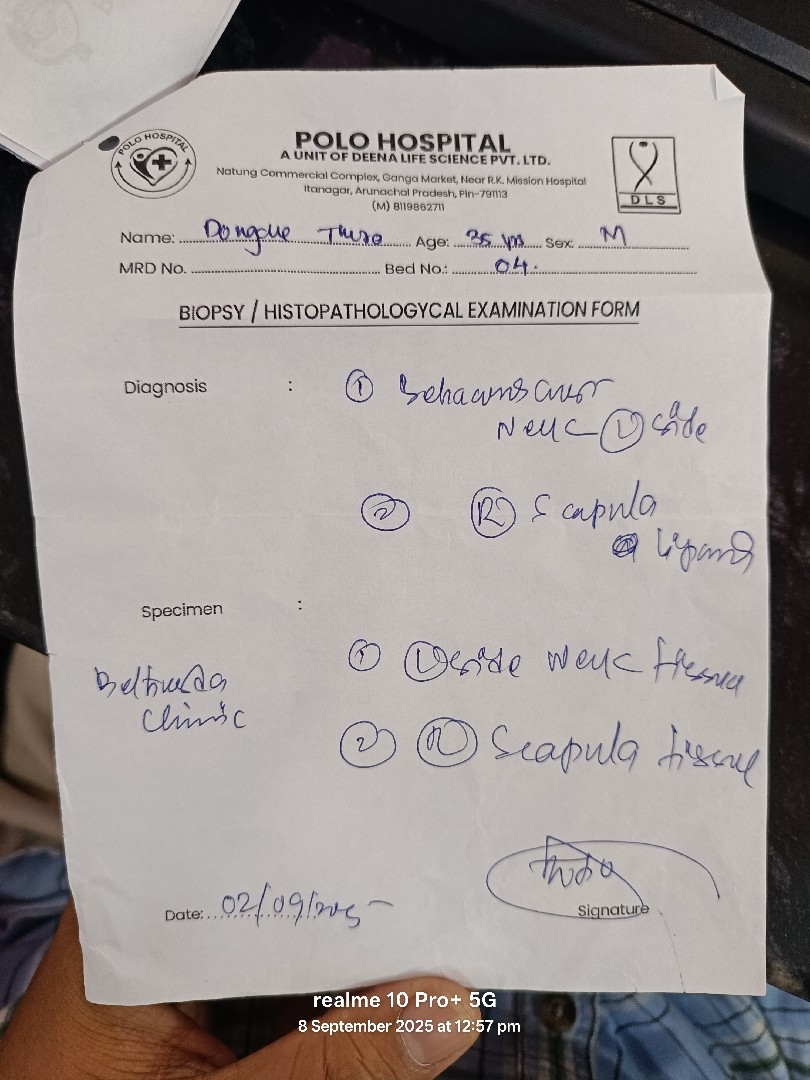 POLO HOSPITAL
POLO HOSPITAL
A UNIT OF DEENA LIFE SCIENCE PVT. LTD.
Natung Commercial Complex, Ganga Market, Near R.K. Mission Hospital
Itanagar, Arunachal Pradesh, Pin-791113
(M) 8119862711
DLS
Name: Age: 35 yrs Sex: M
MRD No. Bed No.: 04.
BIOPSY / HISTOPATHOLOGYCAL EXAMINATION FORM
Diagnosis : ①
Neck Ⓛ side
② Ⓡ Scapula
Specimen :
① Ⓛ side neck tissue
Clinic
② Ⓡ Scapula tissue
Date: 02/09/2025
Signature
realme 10 Pro+ 5G
8 September 2025 at 12:57 pm